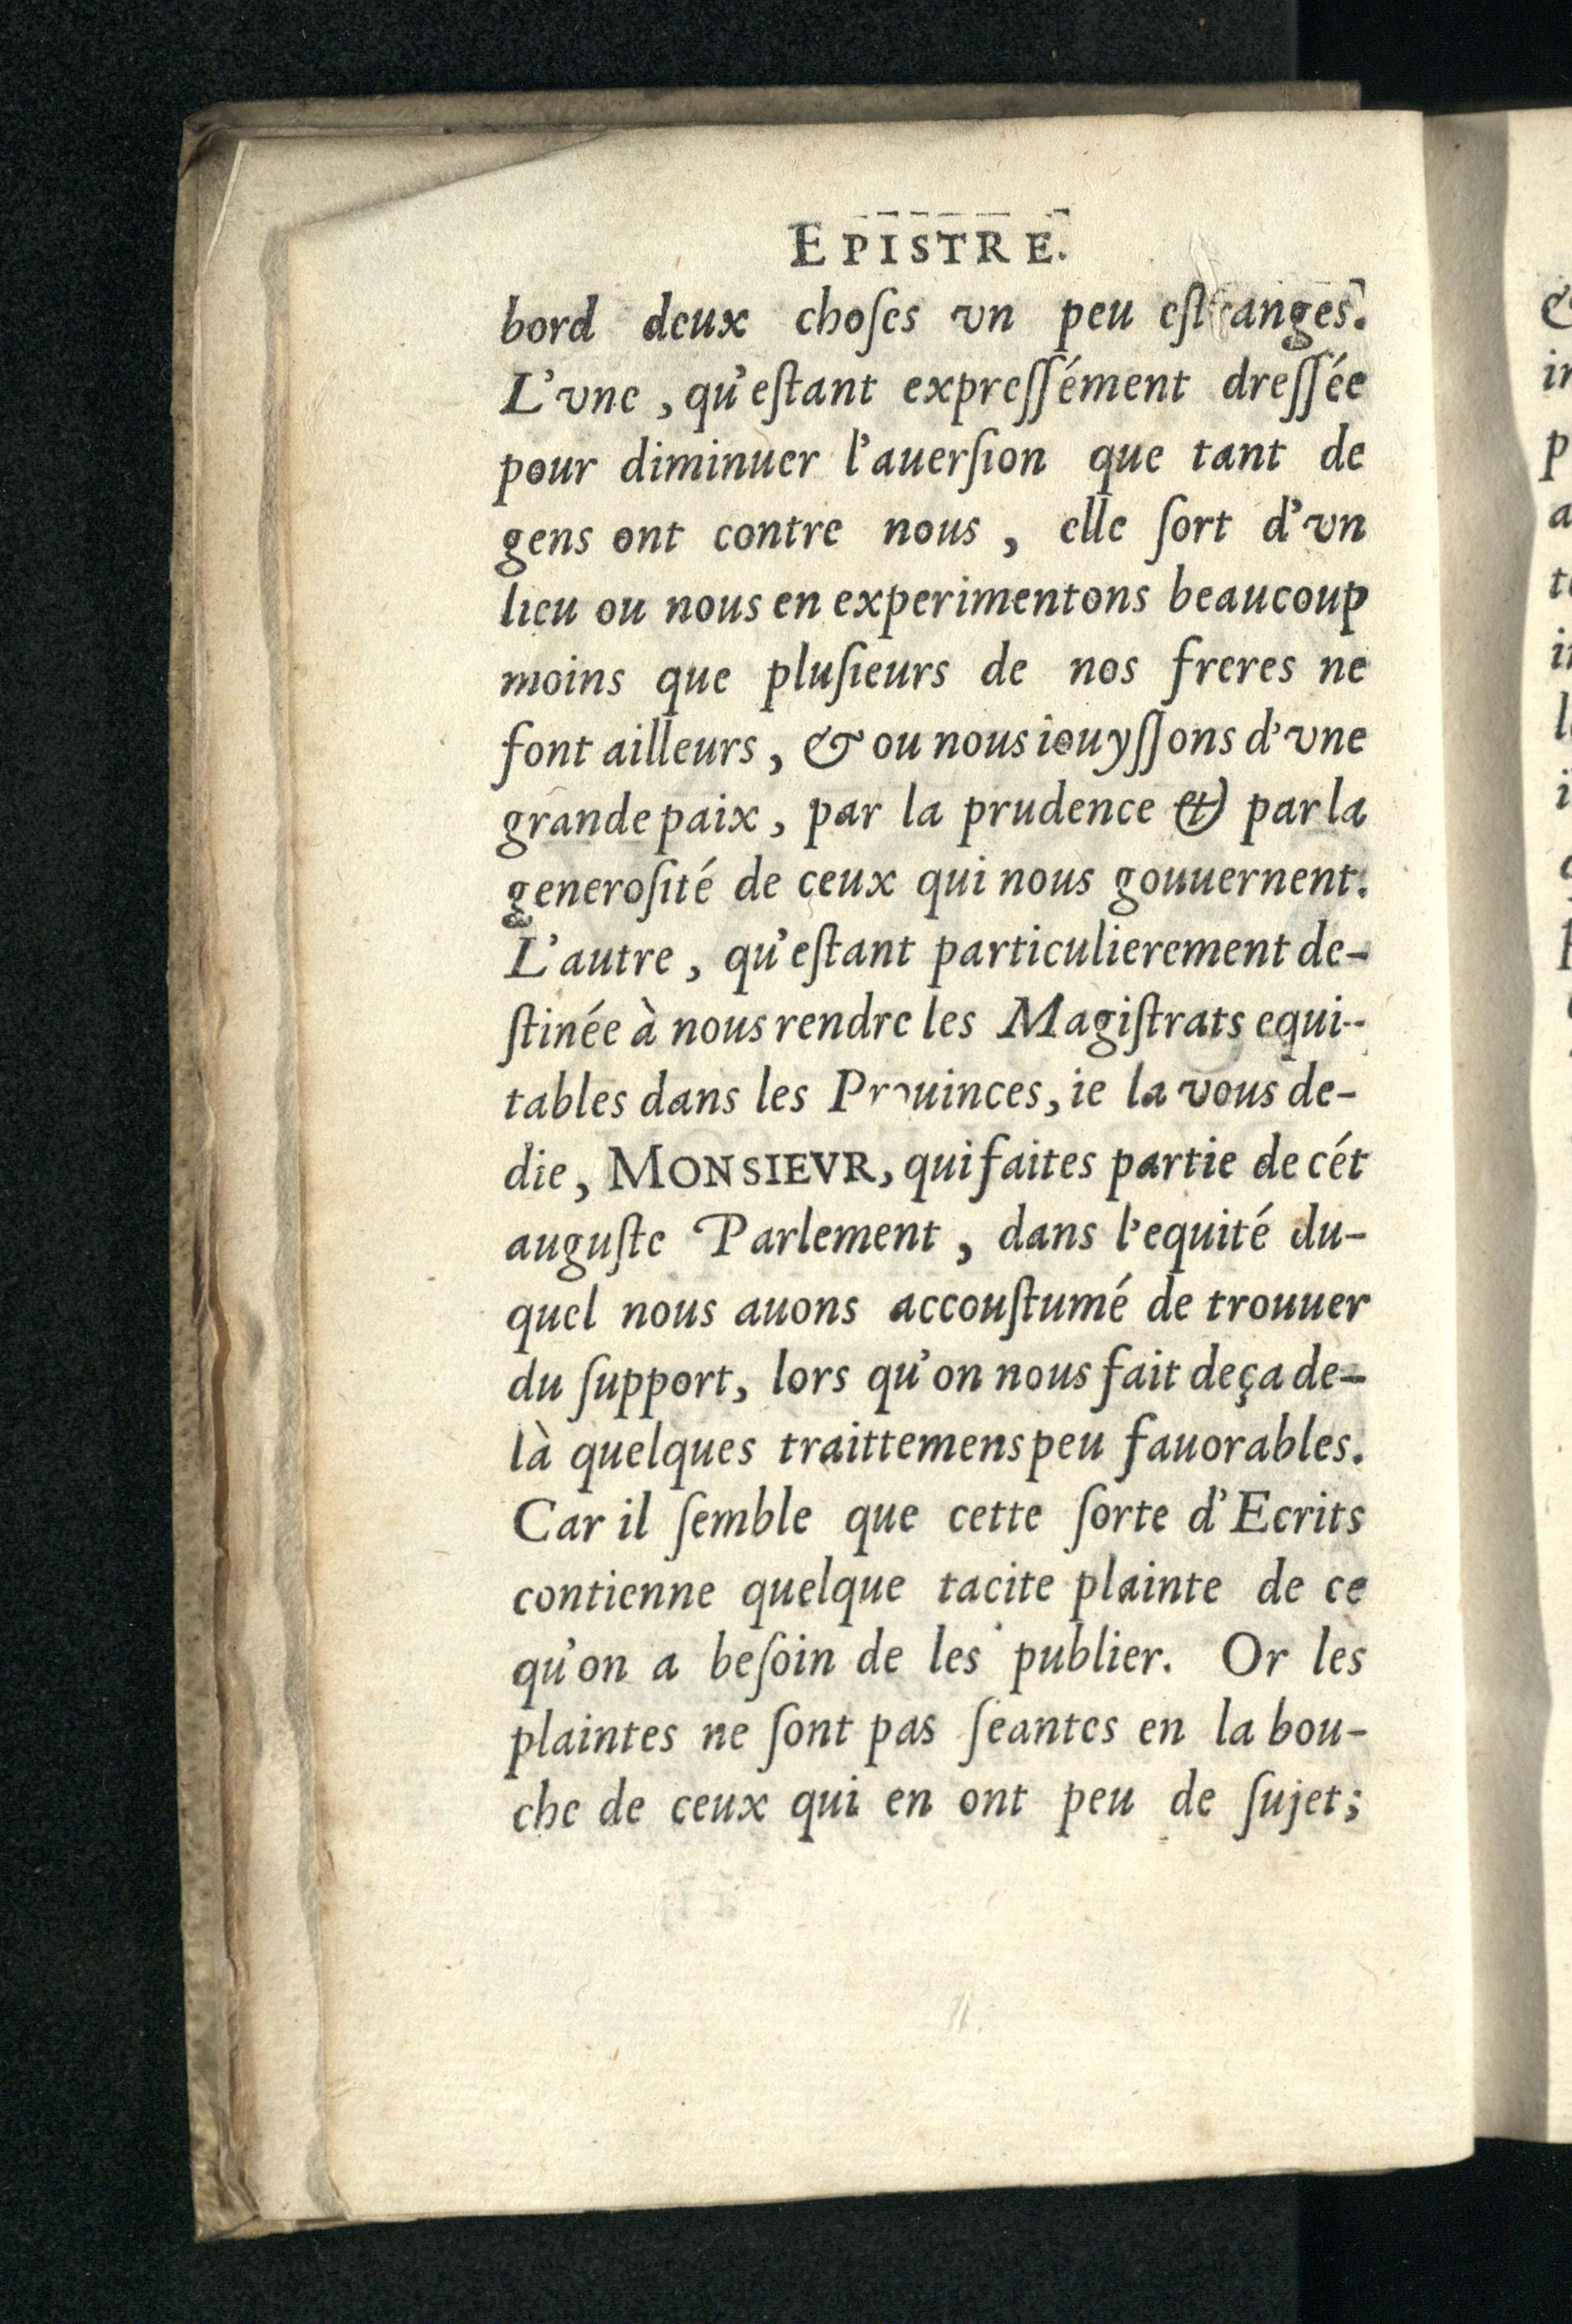 EPISTRE.
bord deux choſes vn peu eſtranges.
L'vne, qu'eſtant expreſſément dreſſée
pour diminuer l'auerſion que tant de
gens ont contre nous, elle ſort d'vn
lieu ou nous en experimentons beaucoup
moins que pluſieurs de nos freres ne
font ailleurs, & ou nous iouyſſons d'vne
grande paix, par la prudence & par la
generoſité de ceux qui nous gouuernent.
L'autre, qu'eſtant particulierement de-
ſtinée à nous rendre les Magiſtrats equi-
tables dans les Prouinces, ie la vous de-
die, MONSIEVR, qui faites partie de cét
auguſte Parlement, dans l'equité du-
quel nous auons accouſtumé de trouuer
du ſupport, lors qu'on nous fait deça de-
là quelques traittemens peu fauorables.
Car il ſemble que cette ſorte d'Ecrits
contienne quelque tacite plainte de ce
qu'on a beſoin de les publier. Or les
plaintes ne ſont pas ſeantes en la bou-
che de ceux qui en ont peu de ſujet;